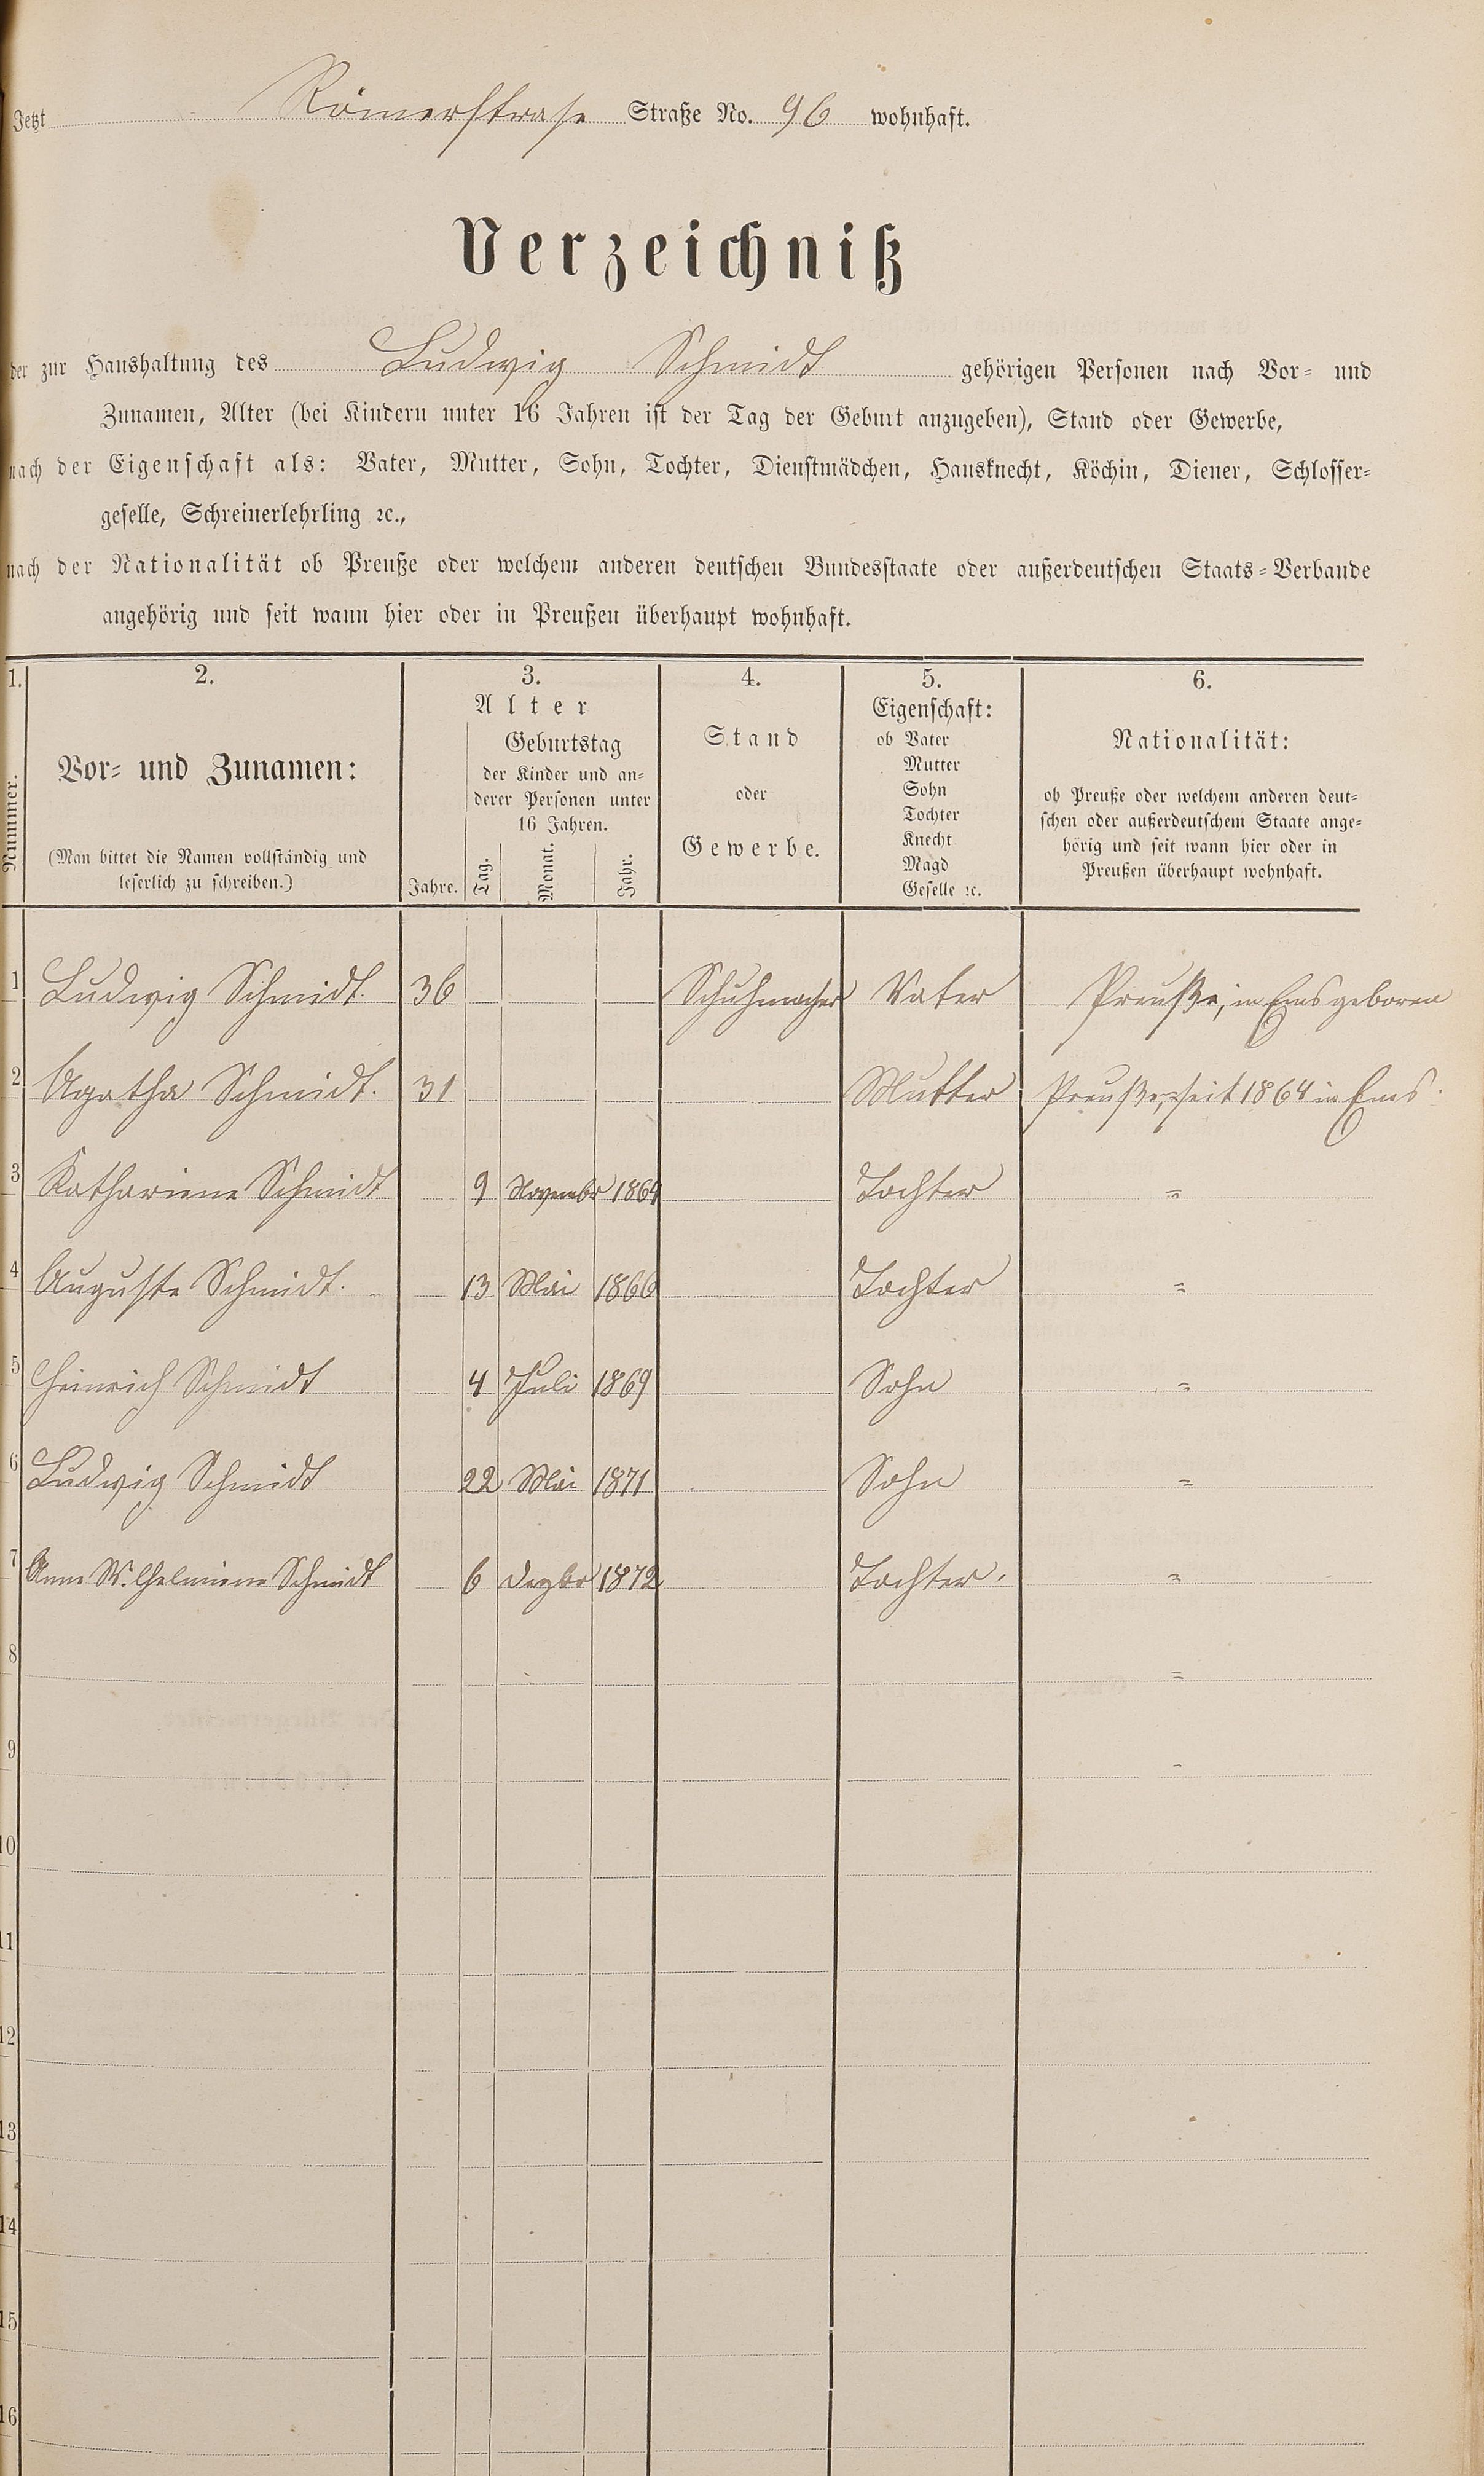 Jetzt Römerstrase Straße No. 96 wohnhaft.
Verzeichniß
der zur Haushaltung des Ludwig Schmidt gehörigen Personen nach Vor- und
Zunamen, Alter (bei Kindern unter 16 Jahren ist der Tag der Geburt anzugeben), Stand oder Gewerbe,
nach der Eigenschaft als: Vater, Mutter, Sohn, Tochter, Dienstmädchen, Hausknecht, Köchin, Diener, Schlosser-
geselle, Schreinerlehrling ꝛc.,
nach der Nationalität ob Preuße oder welchem anderen deutschen Bundesstaate oder außerdeutschen Staats-Verbande
angehörig und seit wann hier oder in Preußen überhaupt wohnhaft.
1.
Nummer.
2.
Vor- und Zunamen:
(Man bittet die Namen vollständig und
leserlich zu schreiben.)
3.
Alter
Jahre.
Geburtstag
der Kinder und an-
derer Personen unter
16 Jahren.
Tag. Monat. Jahr.
4.
Stand
oder
Gewerbe.
5.
Eigenschaft:
ob Vater
Mutter
Sohn
Tochter
Knecht
Magd
Geselle ꝛc.
6.
Nationalität:
ob Preuße oder welchem anderen deut-
schen oder außerdeutschem Staate ange-
hörig und seit wann hier oder in
Preußen überhaupt wohnhaft.
1 Ludwig Schmidt. 36 Schuhmacher Vater Preuße, in Ems geboren
2 Agatha Schmidt. 31 Mutter Preuße, seit 1864 in Ems.
3 Kathariena Schmidt 9 Novembr 1864 Tochter =
4 Auguste Schmidt. 13 Mai 1866 Tochter =
5 Heinrich Schmidt 4 Juli 1869 Sohn =
6 Ludwig Schmidt 22 Mai 1871 Sohn =
7 Anna Wilhelmiena Schmidt 6 Dezbr 1872 Tochter. =
8 =
9 -
10
11
12
13
14
15
16